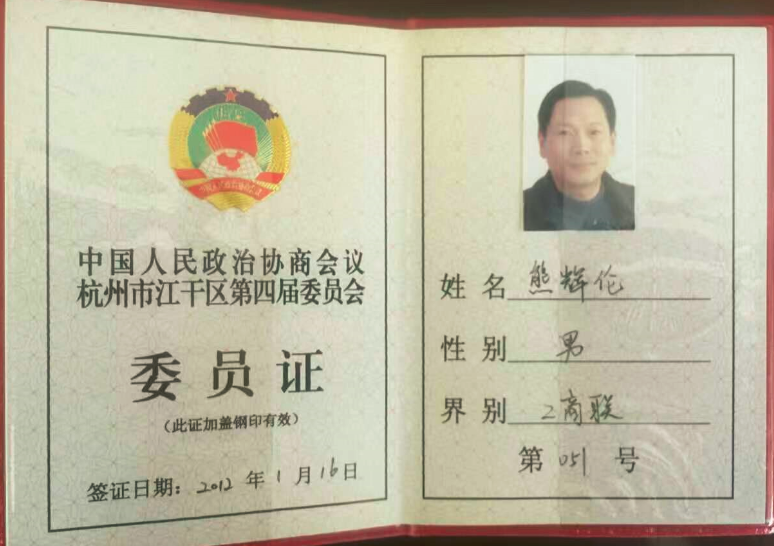 中国人民政治协商会议
杭州市江干区第四届委员会
委员证
（此证加盖钢印有效）
签证日期：2012年1月16日
姓名 熊辉伦
性别 男
界别 工商联
第051号